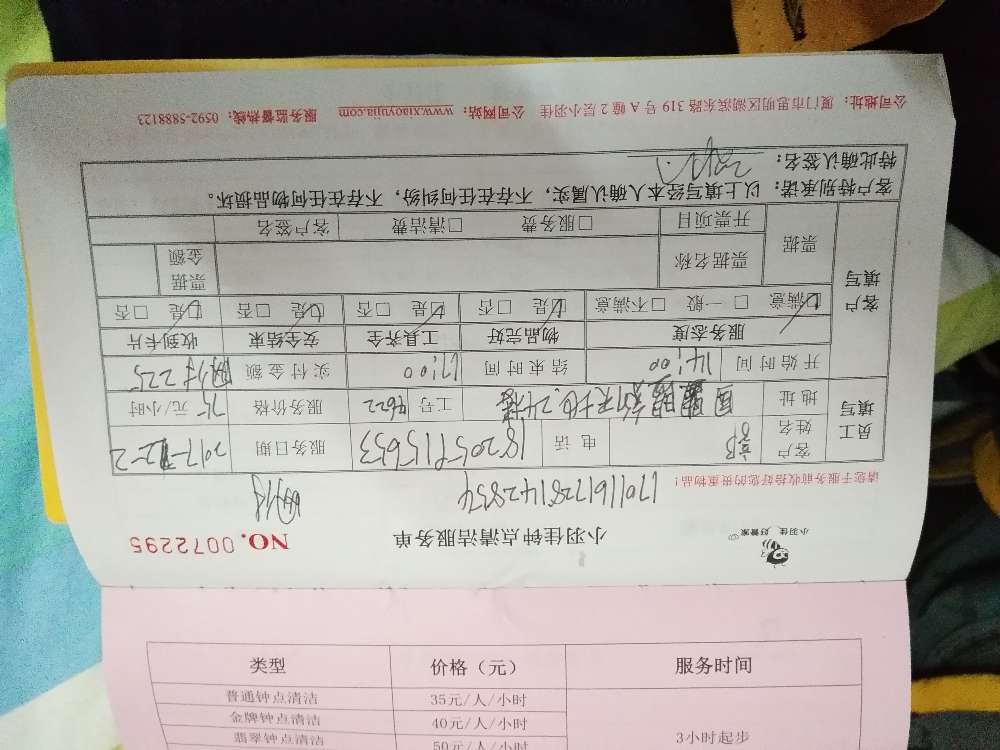 小羽佳 好管家
小羽佳钟点清洁服务单
NO. 0072295
请您于服务前收拾好您的贵重物品！
员工填写
客户姓名 电话 服务日期 2017-12-2
地址 24楼 工号 4622 服务价格 75 元/小时
开始时间 14:00 结束时间 17:00 实付金额 225
客户填写
服务态度 物品完好 工具齐全 安全结束 收到卡片
☑满意 □一般 □不满意 ☑是 □否 ☑是 □否 ☑是 □否 ☑是 □否
票据 票据名称 票据金额
开票项目 □服务费 □清洁费 客户签名
客户特别承诺：以上填写经本人确认属实，不存在任何纠纷，不存在任何物品损坏。
特此确认签名：
公司地址：厦门市思明区湖滨东路 319 号 A 幢 2 层小羽佳 公司网站：www.xiaoyujia.com 服务监督热线：0592-5888123
类型 价格（元） 服务时间
普通钟点清洁 35元/人/小时
金牌钟点清洁 40元/人/小时
翡翠钟点清洁 50元/人/小时
3小时起步